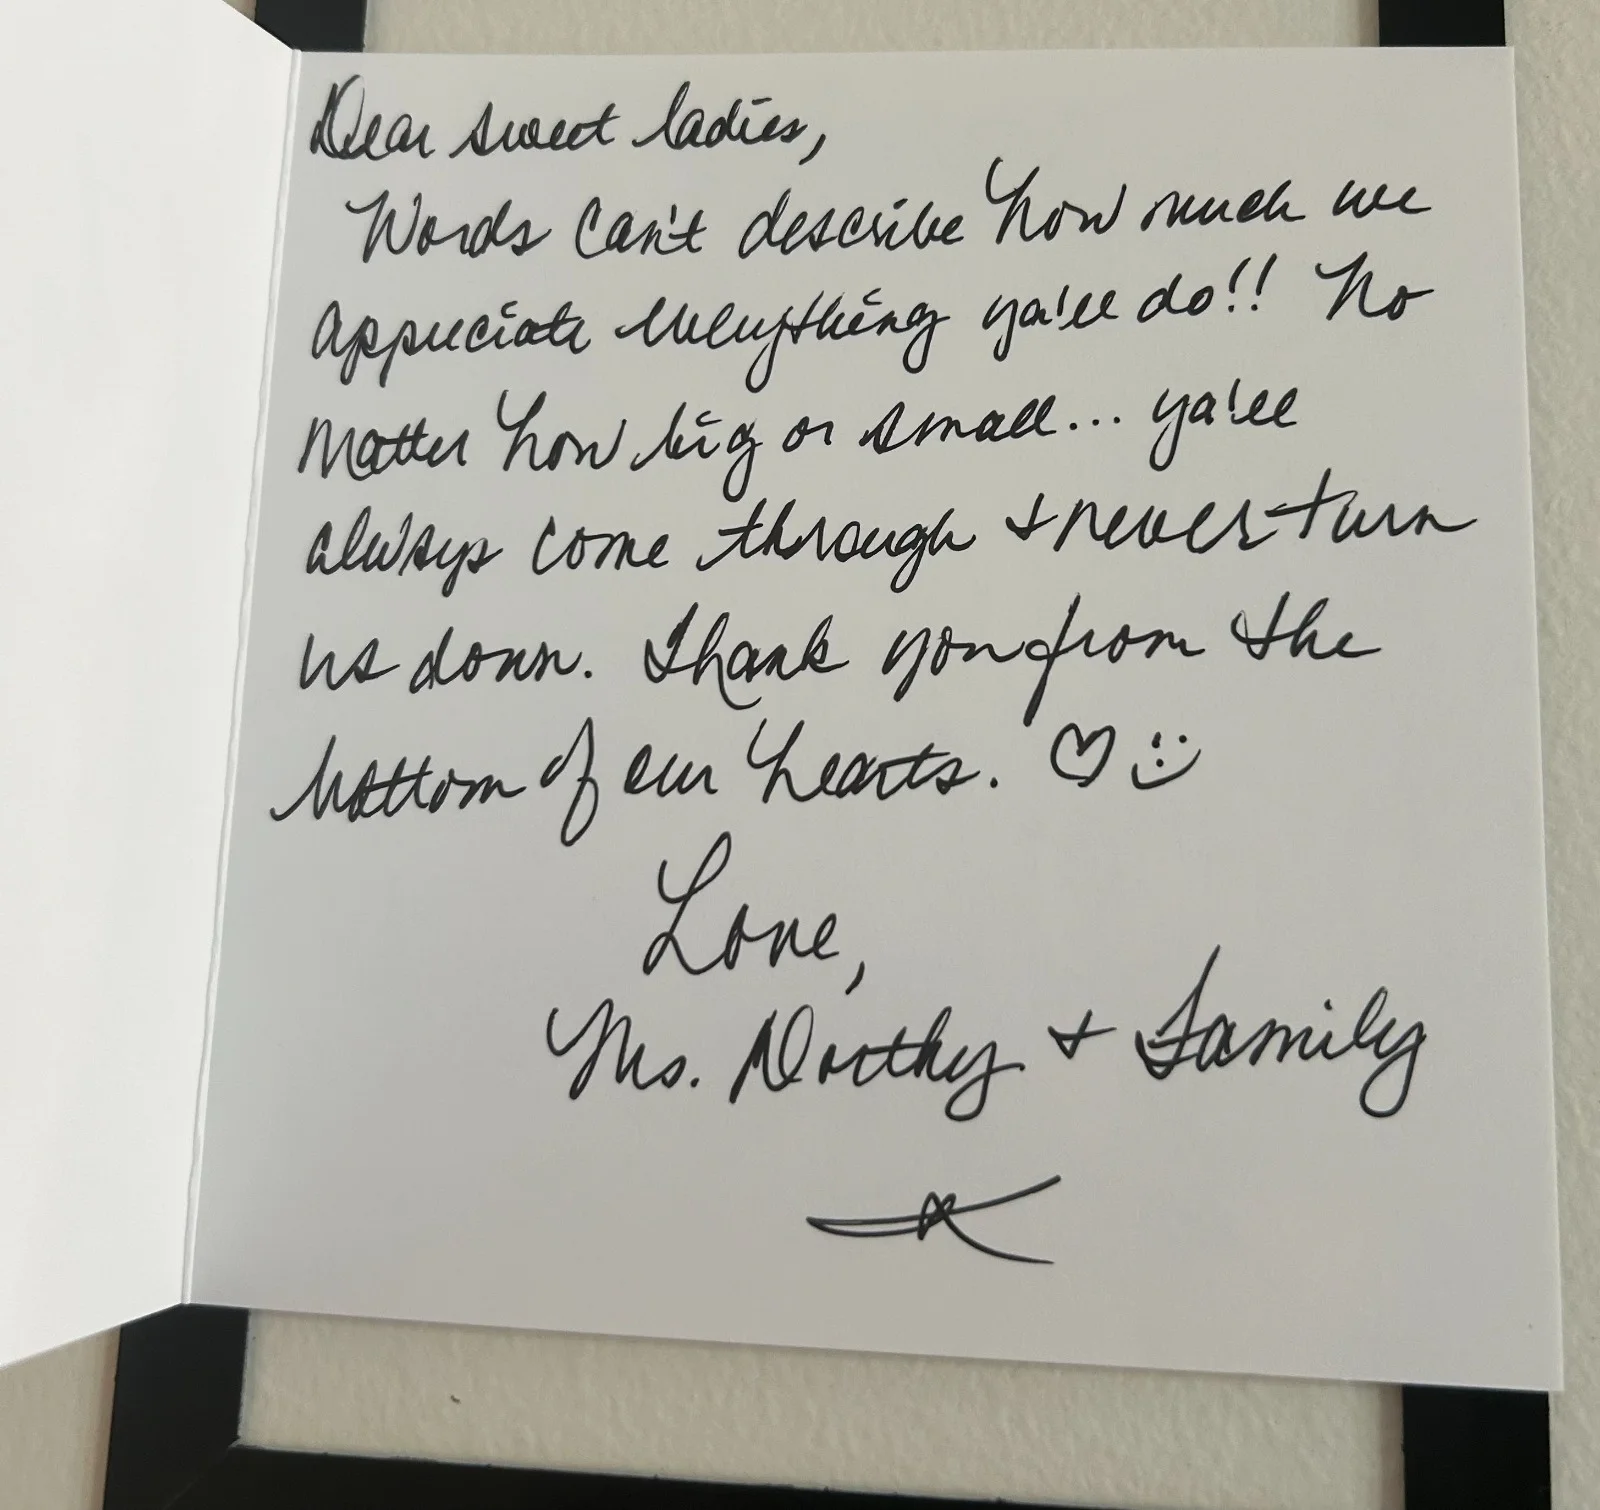 Dear sweet ladies,
Words can't describe how much we
appreciate everything ya'll do!! No
matter how big or small... ya'll
always come through + never turn
us down. Thank you from the
bottom of our hearts. ♡ :)
Love,
Ms. Dorthy + Family